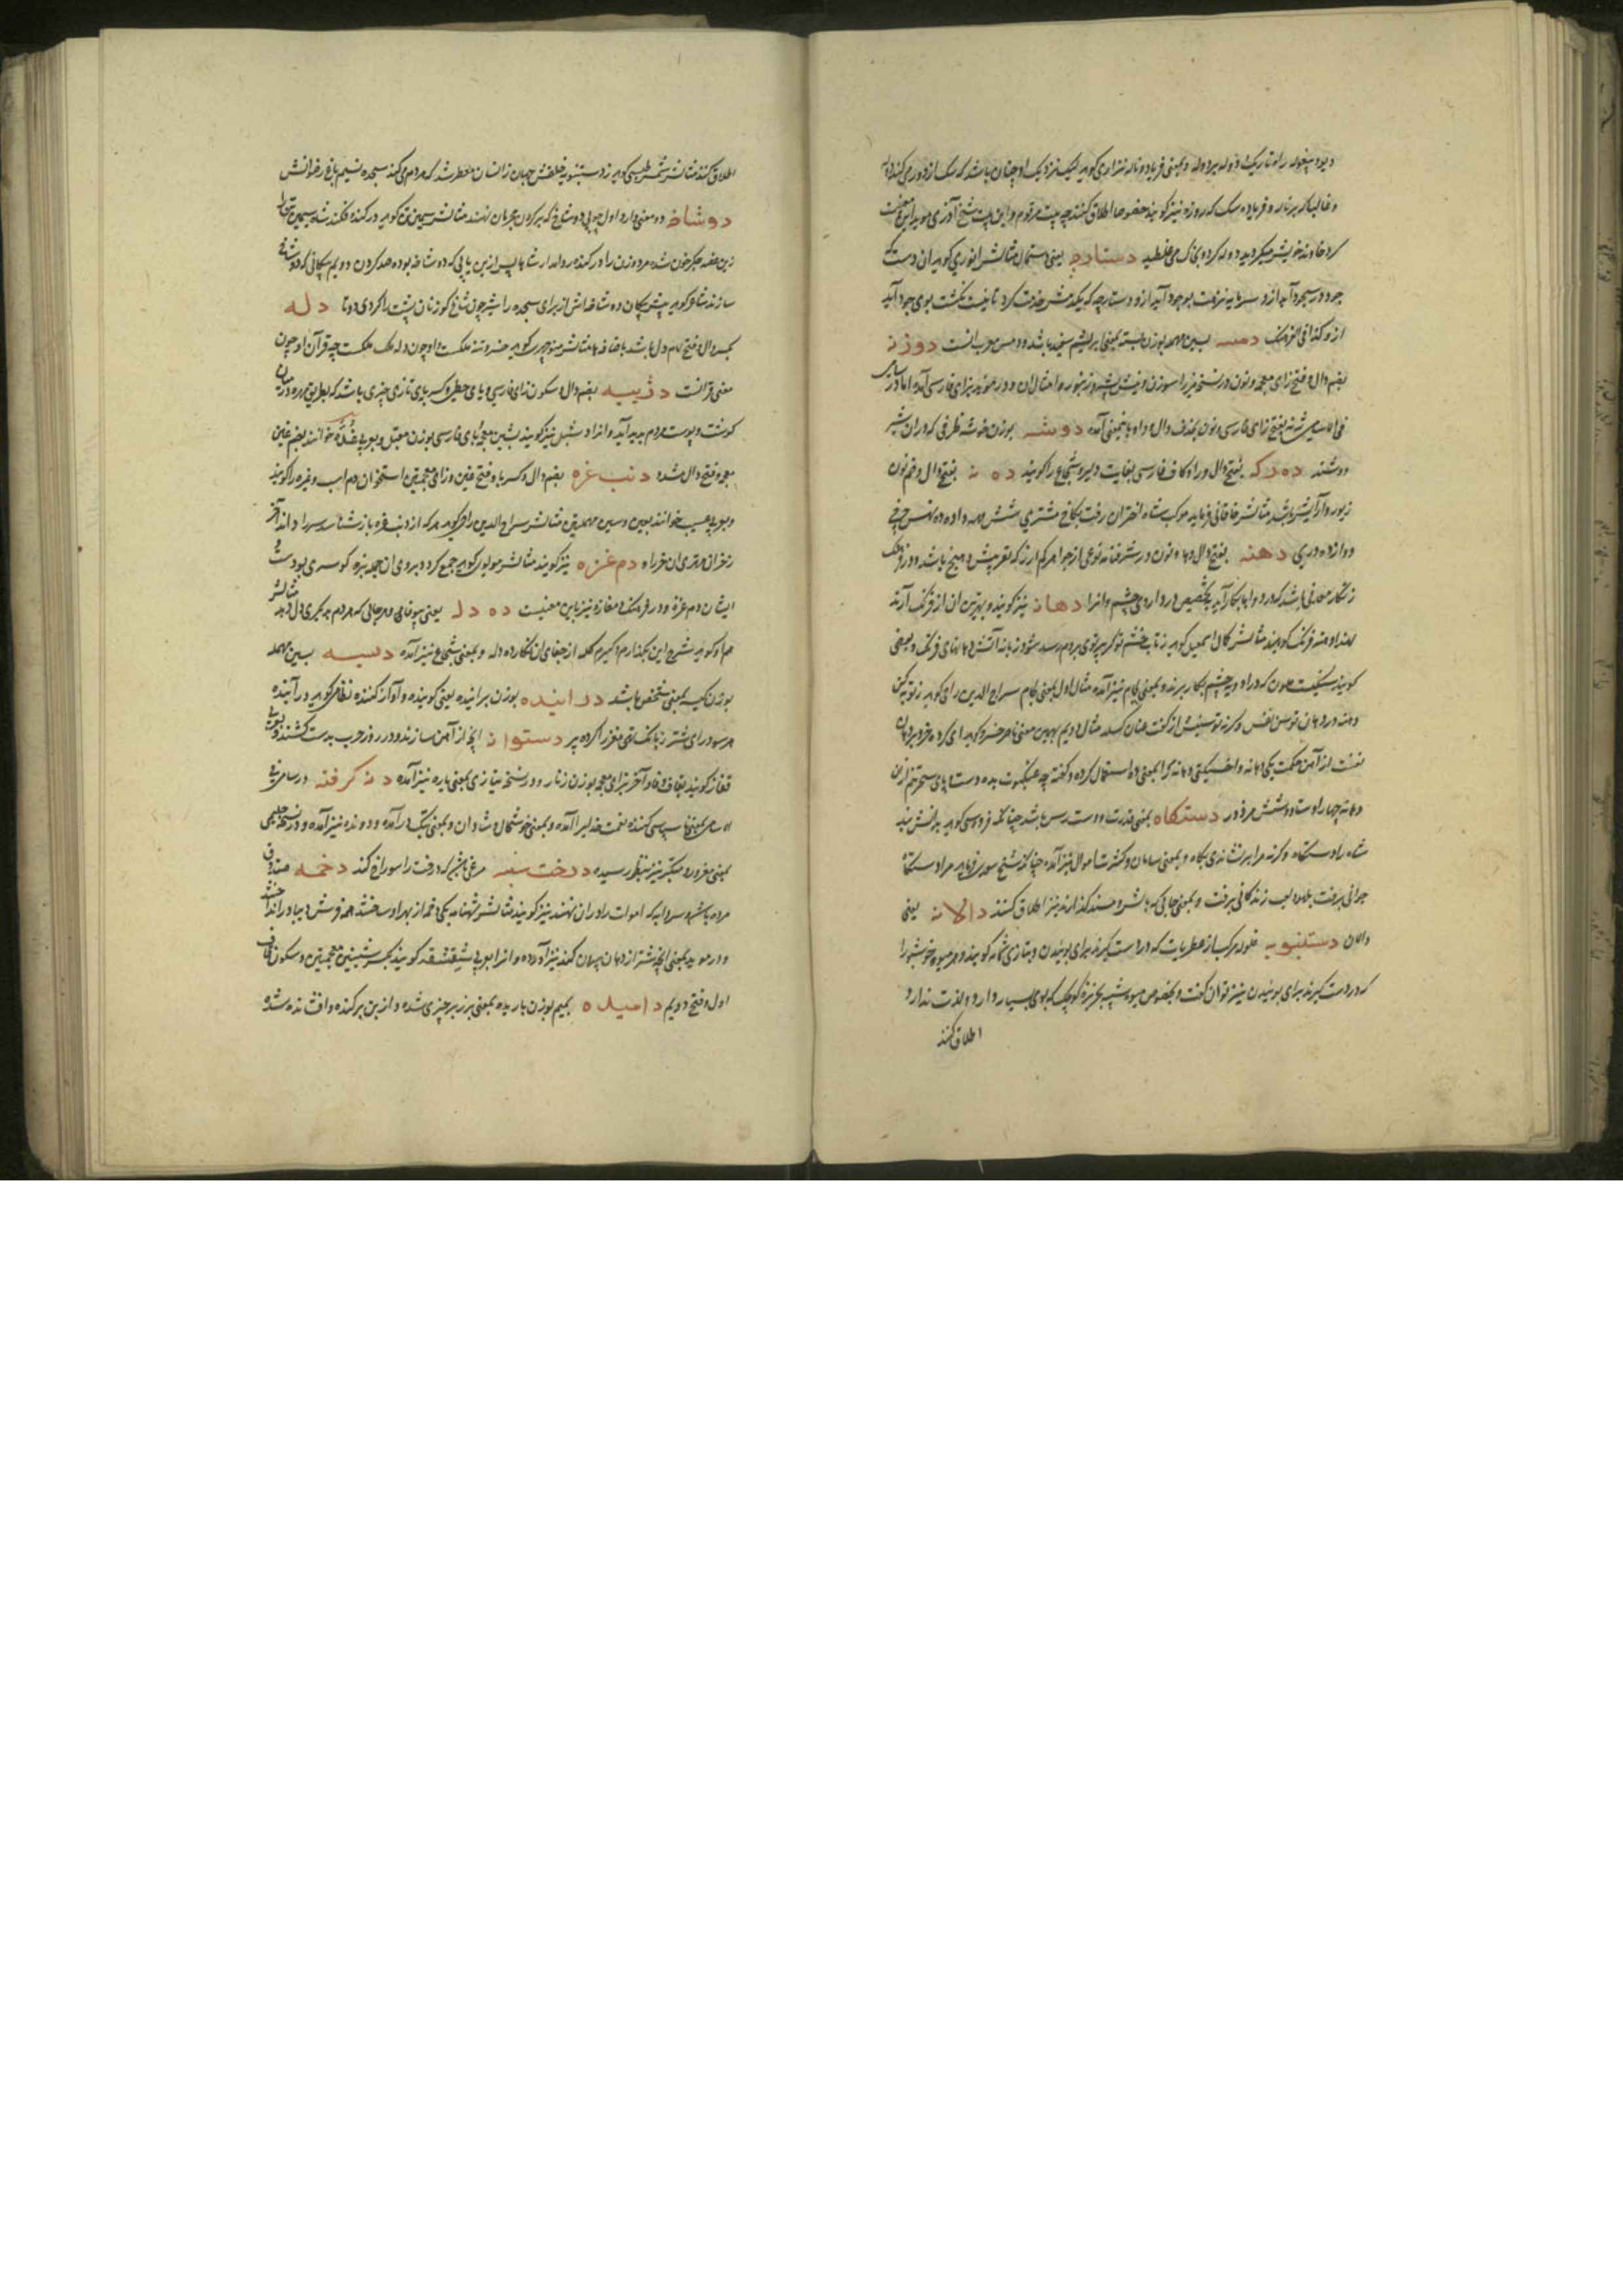 دیو و بیغوله راه تاریک و وله بر دوله و بمعنی فریاد و ناله نیز از کوید لیک نزدیک او چنان باشد که سک از دور می کند
و غالبا که بر ناله و فریاد سک که روزه نیز کویند خصوصا اطلاق کنند چه بیت مرقوم و این بیت شیخ آذری موید این معنیست
کرد خاوند خویش میکردید دوله کرده بخاک می غلطید دستارچه یعنی دستمال مثالش انوری کوید ان دست که
جود در سجود آید ازو سرمایه نزهت بوجود آید ازو دستارچه که یکدمش خدمت کرد تا نیست نکشت بوی جود آید
ازو کذا فی الفرهنک دمسه بسین مهمله بوزن بسته بمعنی ابریشم سفید باشد و دمس معرب انست دوزنه
بضم دال و فتح زای معجمه و نون در نسخه میرزا سوزن و نیش پشه و زنبور و امثال ان و در موید بزای فارسی آمده اما در سامی
فی الاسامی بفتح زای فارسی و نون بحذف دال و واو باینمعنی آمده دوشه بوزن خوشه ظرفی که در ان شیر
دوشند ده درکه بفتح دال و را و کاف فارسی بغایت دلیر و شجاع را کویند ده نه بفتح دال و ضم نون
زیور و آرایش باشد مثالش خاقانی فرماید موکب شاه اختران رفت بکاخ مشتری شش مهه داده ده نهش چرخ
دوازده دری دهنه بفتح دال و ها و نون در شرفنامه نوعی از جواهر کم ارز که بقر پیش و هیچ باشد و در فرهنک
زنکار معدنی باشد که در دواها بکار آید بتخصیص در داروهای چشم و انرا دهانه نیز کویند و بهترین ان از فرنک آرند
لهذا دهنه فرنک کویند مثالش کمال اسمعیل کوید ز تاب خشم تو کر پرتوی بروم رسد شود زبانه آتش دهانهای فرنک و بعضی
کویند سنکیست که در ادویه چشم بکار برند و بمعنی لجام نیز آمده مثال اول بمعنی لجام سراج الدین راجی کوید ز توبه کن
دهنه در دهان توسن نفس و کرنه توسنیش از کفت عنان کسلد مثال دویم بهمین معنی ناصر خسرو کوید ای کرده خرد بر دهان
نفست از آهن حکمت یکی دهانه و اخسیکتی دهانه را بمعنی دهن استعمال کرده و کفته چه عنکبوت بدو دست و پای سخره تنم ازین
دهانه چهار است و شش مزدور دستکاه بمعنی قدرت و دست رس باشد چنانکه فردوسی کوید بدانش نبد
شاه را دستکاه وکرنه مرا بر نشاندی بکاه و بمعنی سامان و کثرت اموال نیز آمده چنانکه شیخ سعدی فرماید مرا دستکاه
جوانی برفت بلهو و لعب زندکانی برفت و بمعنی جائی که باشد و مسند کذارند نیز اطلاق کنند دالانه یعنی
دالان دستنبویه غلوله مرکب از عطریات که در دست کیرند برای بوئیدن و بتازی شمامه کویند و هر میوه خوشبو را
که در دست کیرند برای بوئیدن نیز توان کفت و بخصوص میوه شبیه بخربزه کوچک که بوی بسیار دارد و لذت ندارد
اطلاق کنند
اطلاق کنند مثالش شمس طبسی کوید ز دستنبویه خلقش جهان زانسان معطر شد که مردم می کند سجده نسیم باغ رضوانش
دوشاخه دو معنی دارد اول چوبی دوشاخ که بر کردن مجرمان نهند مثالش سیمین کوید در کنده فکند شه سیمین تنها
زین غصه جکر خون شده مرد و زن را در کنده روا مدار شاها پس ازین پایی که دوشاخه بوده صد کردن دویم پیکانی که دوشاخه
سازند شاعر کوید پیش پیکان دوشاخه اش از برای سجده را شیر چون شاخ کوزنان پشت را کردی دوتا دله
بکسر دال و فتح لام دل باشد باضافه ها مثالش منوچهری کوید خسرو تنه ملکست و او چون دله ملک ملکست چه قرآن او چون
معنی قرآنست دژپیه بضم دال و سکون زای فارسی و یای حطی و کسر بای تازی چیزی باشد که بطریق مهره در میان
کوشت و پوست مردم پدید آید و انرا دشبل نیز کویند بشین معجمه و بای فارسی بوزن مقبل و بعربی غُدَّه خوانند بضم غین
معجمه و فتح دال مشدد دنب غزه بضم دال و کسر با و فتح غین و زای معجمتین استخوان دم اسب و غیره را کویند
و بعربی عسیب خوانند بعین و سین مهملتین مثالش سراج الدین راجی کوید هر که از دنب غزه باز شناسد سر را داند آخر
ز خران مهتری ان خر را ه دم غزه نیز کویند مثالش مولوی کوید جمع کرد و برد ان جمله بزه کوسری بودست و
ایشان دم غزه و در فرهنک دمغازه نیز باین معنیست ده دله یعنی بیوفایی و هر جائی که هر دم بدیکری دل دهد مثالش
هم او کوید شرح این بکذارم و کیرم کله از جفای ان نکار ده دله و بمعنی شجاع نیز آمده دسیه بسین مهمله
بوزن کیسه بمعنی شخص باشد دراینده بوزن براننده یعنی کوینده و آواز کننده نظامی کوید درآینده
هر سو درای شتر ز بانک تهی مغز را کرده پر دستوانه انچه از آهن سازند و در روز حرب بدست کشند و بعربی
قفاز کویند بقاف و فا و آخر بزای معجمه بوزن زنار و در نسخه نیازی بمعنی یاره نیز آمده دنه کرفته در سامی فی
الاسامی بمعنی ناسپاسی کننده نعمت خدایرا آمده و بمعنی خوشحال و شادان و بمعنی بتک درآمده و دونده نیز آمده و در نسخه حلیمی
بمعنی مغرور و متکبر نیز بنظر رسیده درخت سنبه مرغی باشد که درخت را سوراخ کند دخمه صندوق
مرده باشد و سردابه که اموات را در ان نهند نیز کویند مثالش شهنامه یکی دخمه از بهر او ساختند همه فرش دیبا در انداختند
و در موید بمعنی انچه شتر از دهان بیرون کند نیز آورده و انرا بعربی شِقشقه کویند بکسر شینین معجمتین و سکون قاف
اول و فتح دویم دامیده بمیم بوزن باریده بمعنی بر زبر چیزی شده و از بن برکنده و افشانده شده